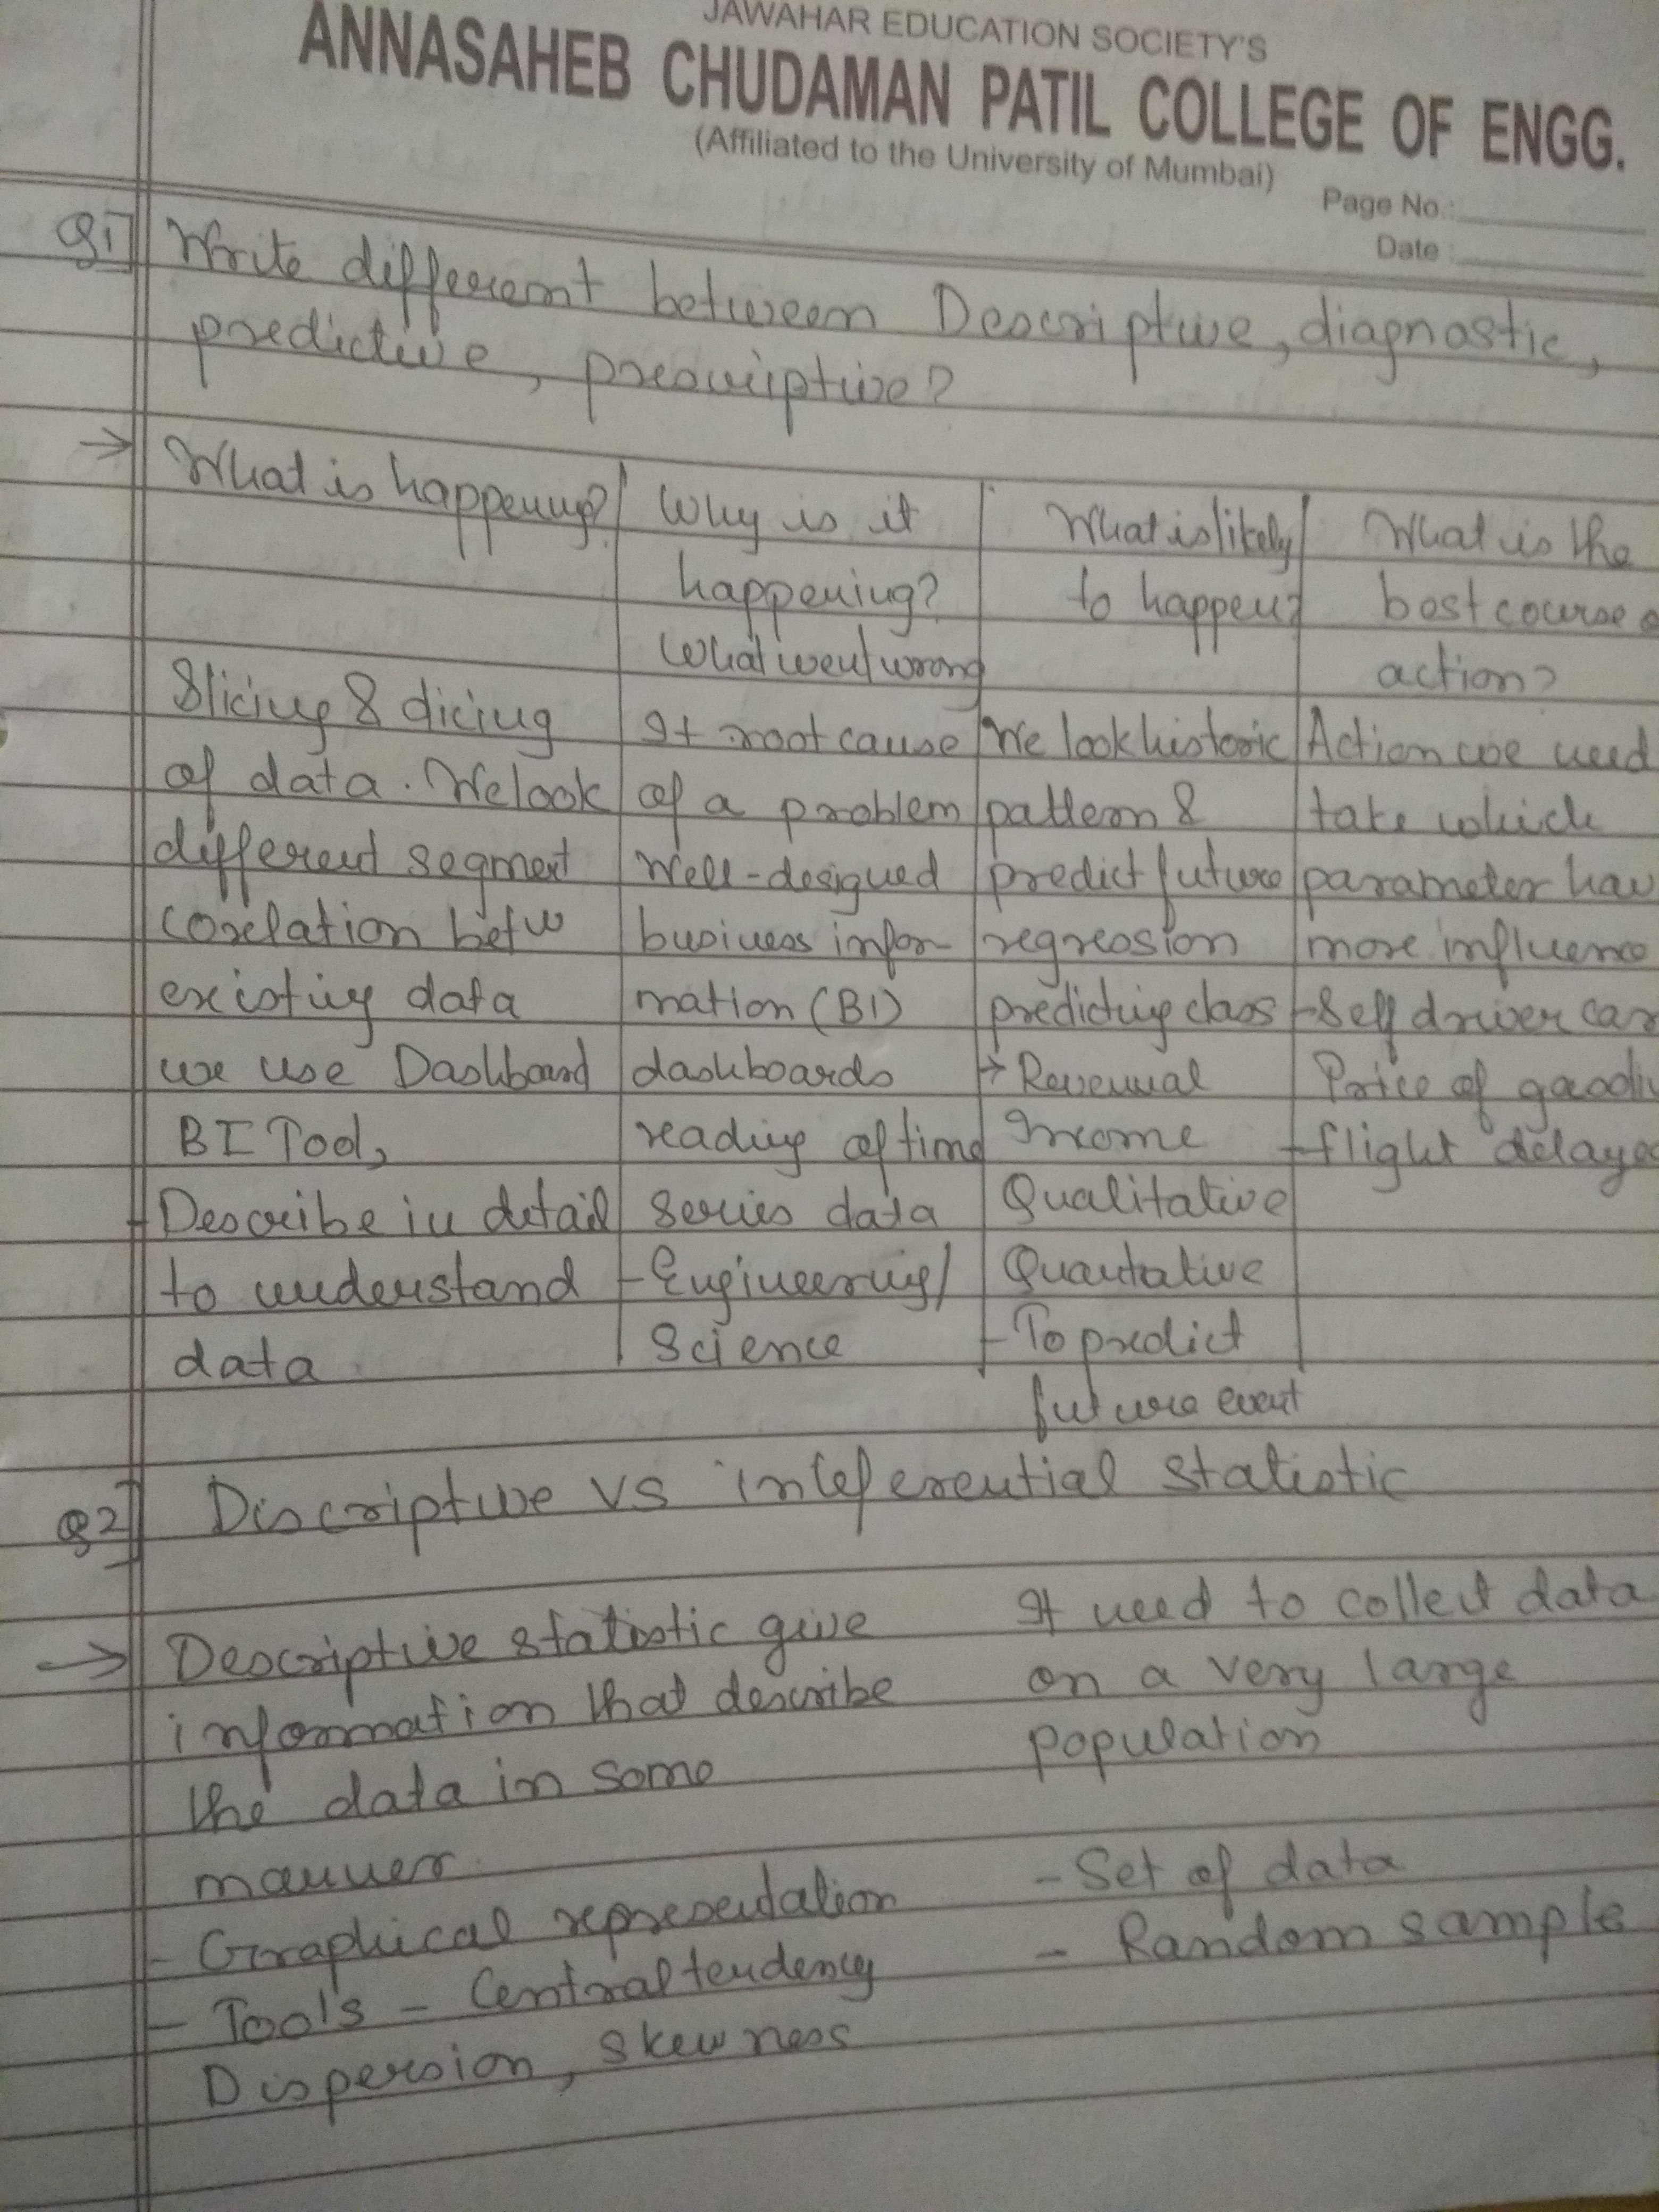 JAWAHAR EDUCATION SOCIETY'S
ANNASAHEB CHUDAMAN PATIL COLLEGE OF ENGG.
(Affiliated to the University of Mumbai)
Page No.:
Date :
Q1] Write different between Descriptive, diagnostic,
predictive, prescriptive?
→ What is happening?
Slicing & dicing
of data. We look
different segment
corelation betw
existing data
we use Dashboard
BI Tool,
- Describe in detail
to understand
data
Why is it
happening?
What went wrong
It root cause
of a problem
Well-designed
business infor-
mation (BI)
dashboards
reading of time
series data
- Engineering/
Science
What is likely
to happen?
We look historic
pattern &
predict future
regression
predicting class
→ Revenual
Income
Qualitative
Quantative
- To predict
future event
What is the
best course
action?
Action we need
take which
parameter hav
more influence
- Self driver car
Price of
- flight delayed
Q2] Discriptive vs inteferential statistic
→ Descriptive statistic give
information that describe
the data in some
manner.
- Graphical representation
- Tools - Central tendency
Dispersion, skewness
It need to collect data
on a very large
population
- Set of data
- Random sample